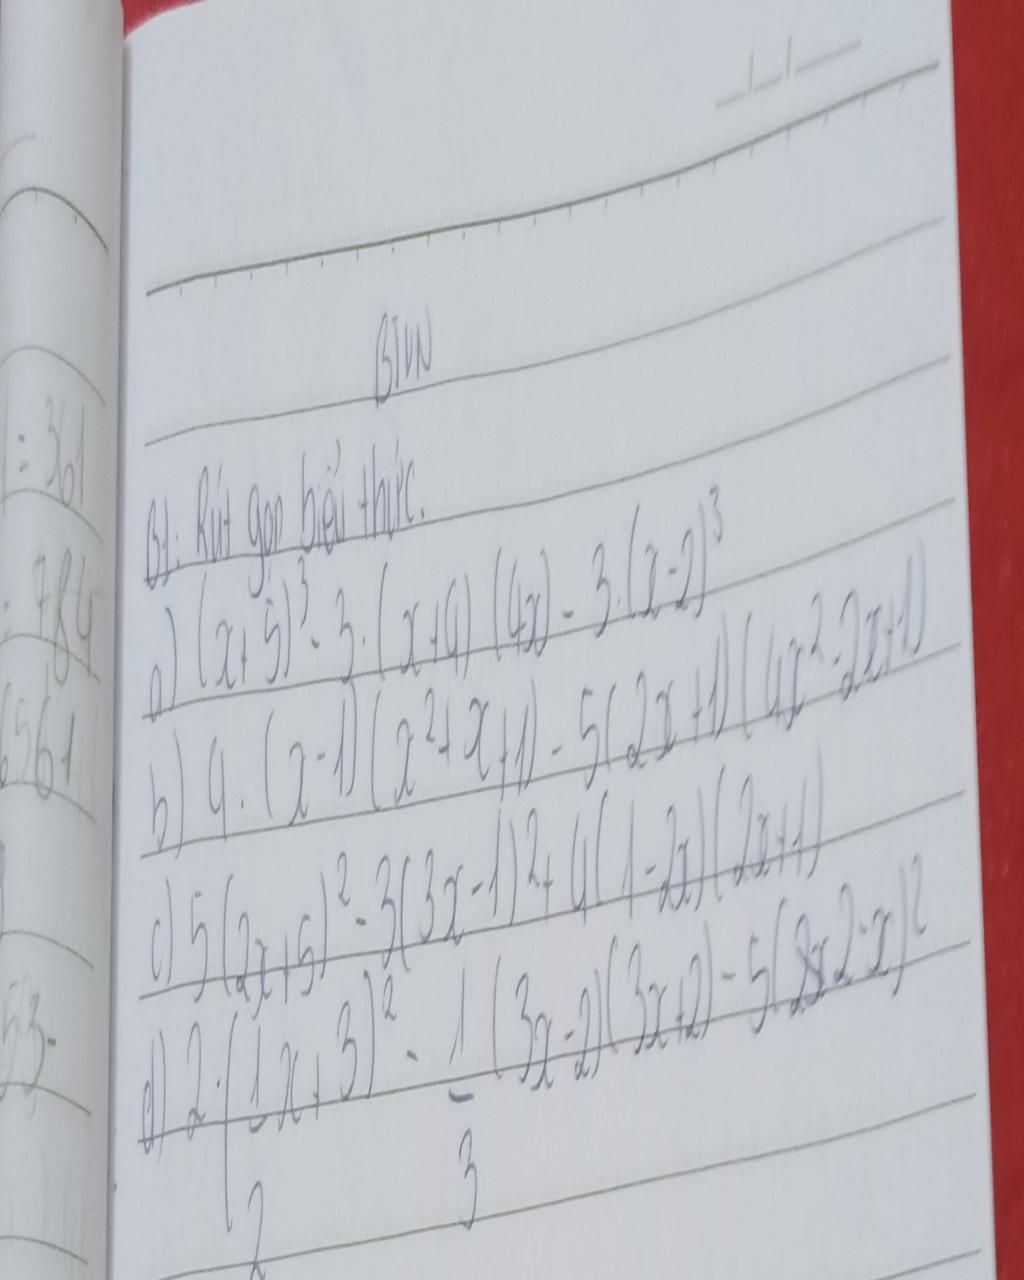 : 361
: 784
6561
53-
BTVN
B1: Rút gọn biểu thức.
a) (x+5)³ - 3.(x+4)(4x) - 3.(x-2)³
b) 4.(x-1)(x²+x+1) - 5(2x+1)(4x²-2x+1)
c) 5(2x+5)² - 3(3x-1)² + 4(1-2x)(2x+1)
d) 2.(1/2x+3)² - 1/3(3x-2)(3x+2) - 5(2-x)²